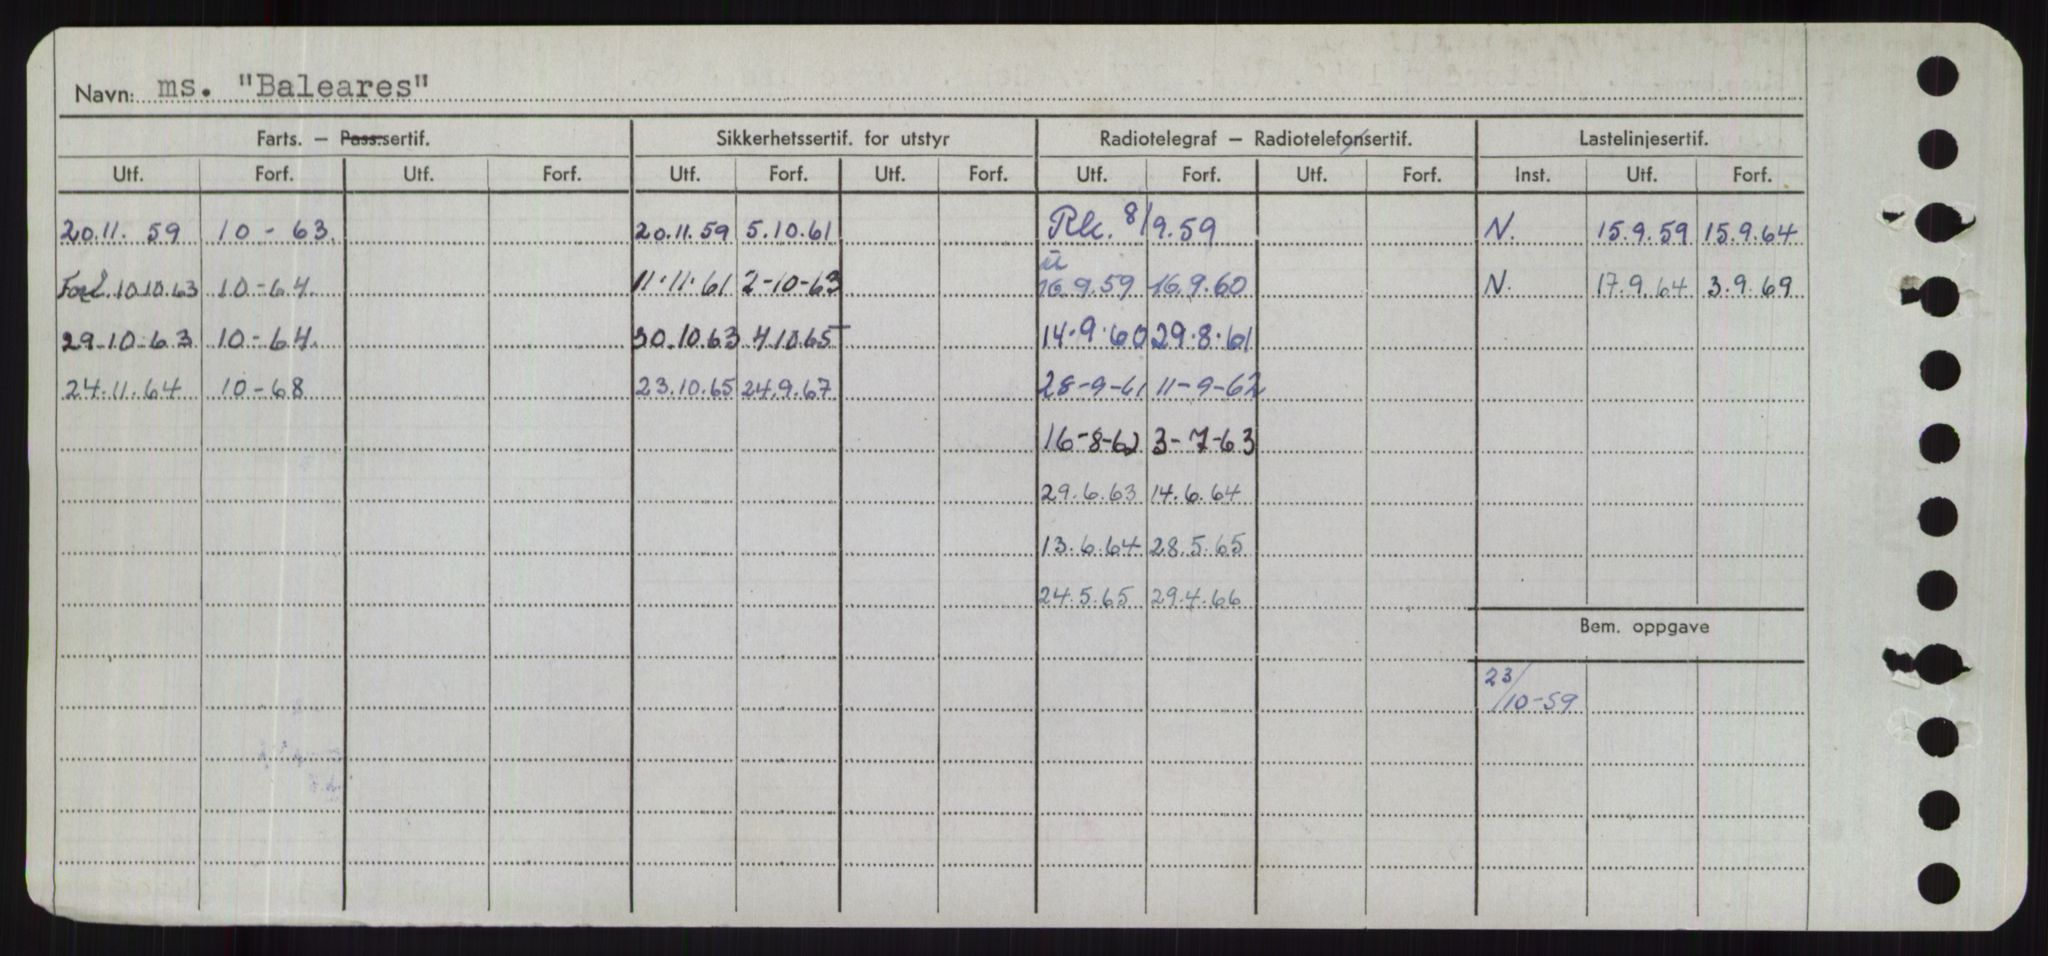 Navn: ms. "Baleares"
Farts. — Pass.sertif. Sikkerhetssertif. for utstyr Radiotelegraf — Radiotelefonsertif. Lastelinjesertif.
Utf. Forf. Utf. Forf. Utf. Forf. Utf. Forf. Utf. Forf. Utf. Forf. Inst. Utf. Forf.
20.11. 59 10 - 63. 20.11.59 5.10.61 Rk. 8/9.59 N. 15.9.59 15.9.64
Forl. 10.10.63 10-64. 11.11.61 2-10-63 16.9.59 16.9.60 N. 17.9.64 3.9.69
29-10-63 10-64. 30.10.63 4.10.65 14.9.60 29.8.61
24.11.64 10-68 23.10.65 24.9.67 28-9-61 11-9-62
16-8-62 3-7-63
29.6.63 14.6.64
13.6.64 28.5.65
24.5.65 29.4.66
Bem. oppgave
23/10-59